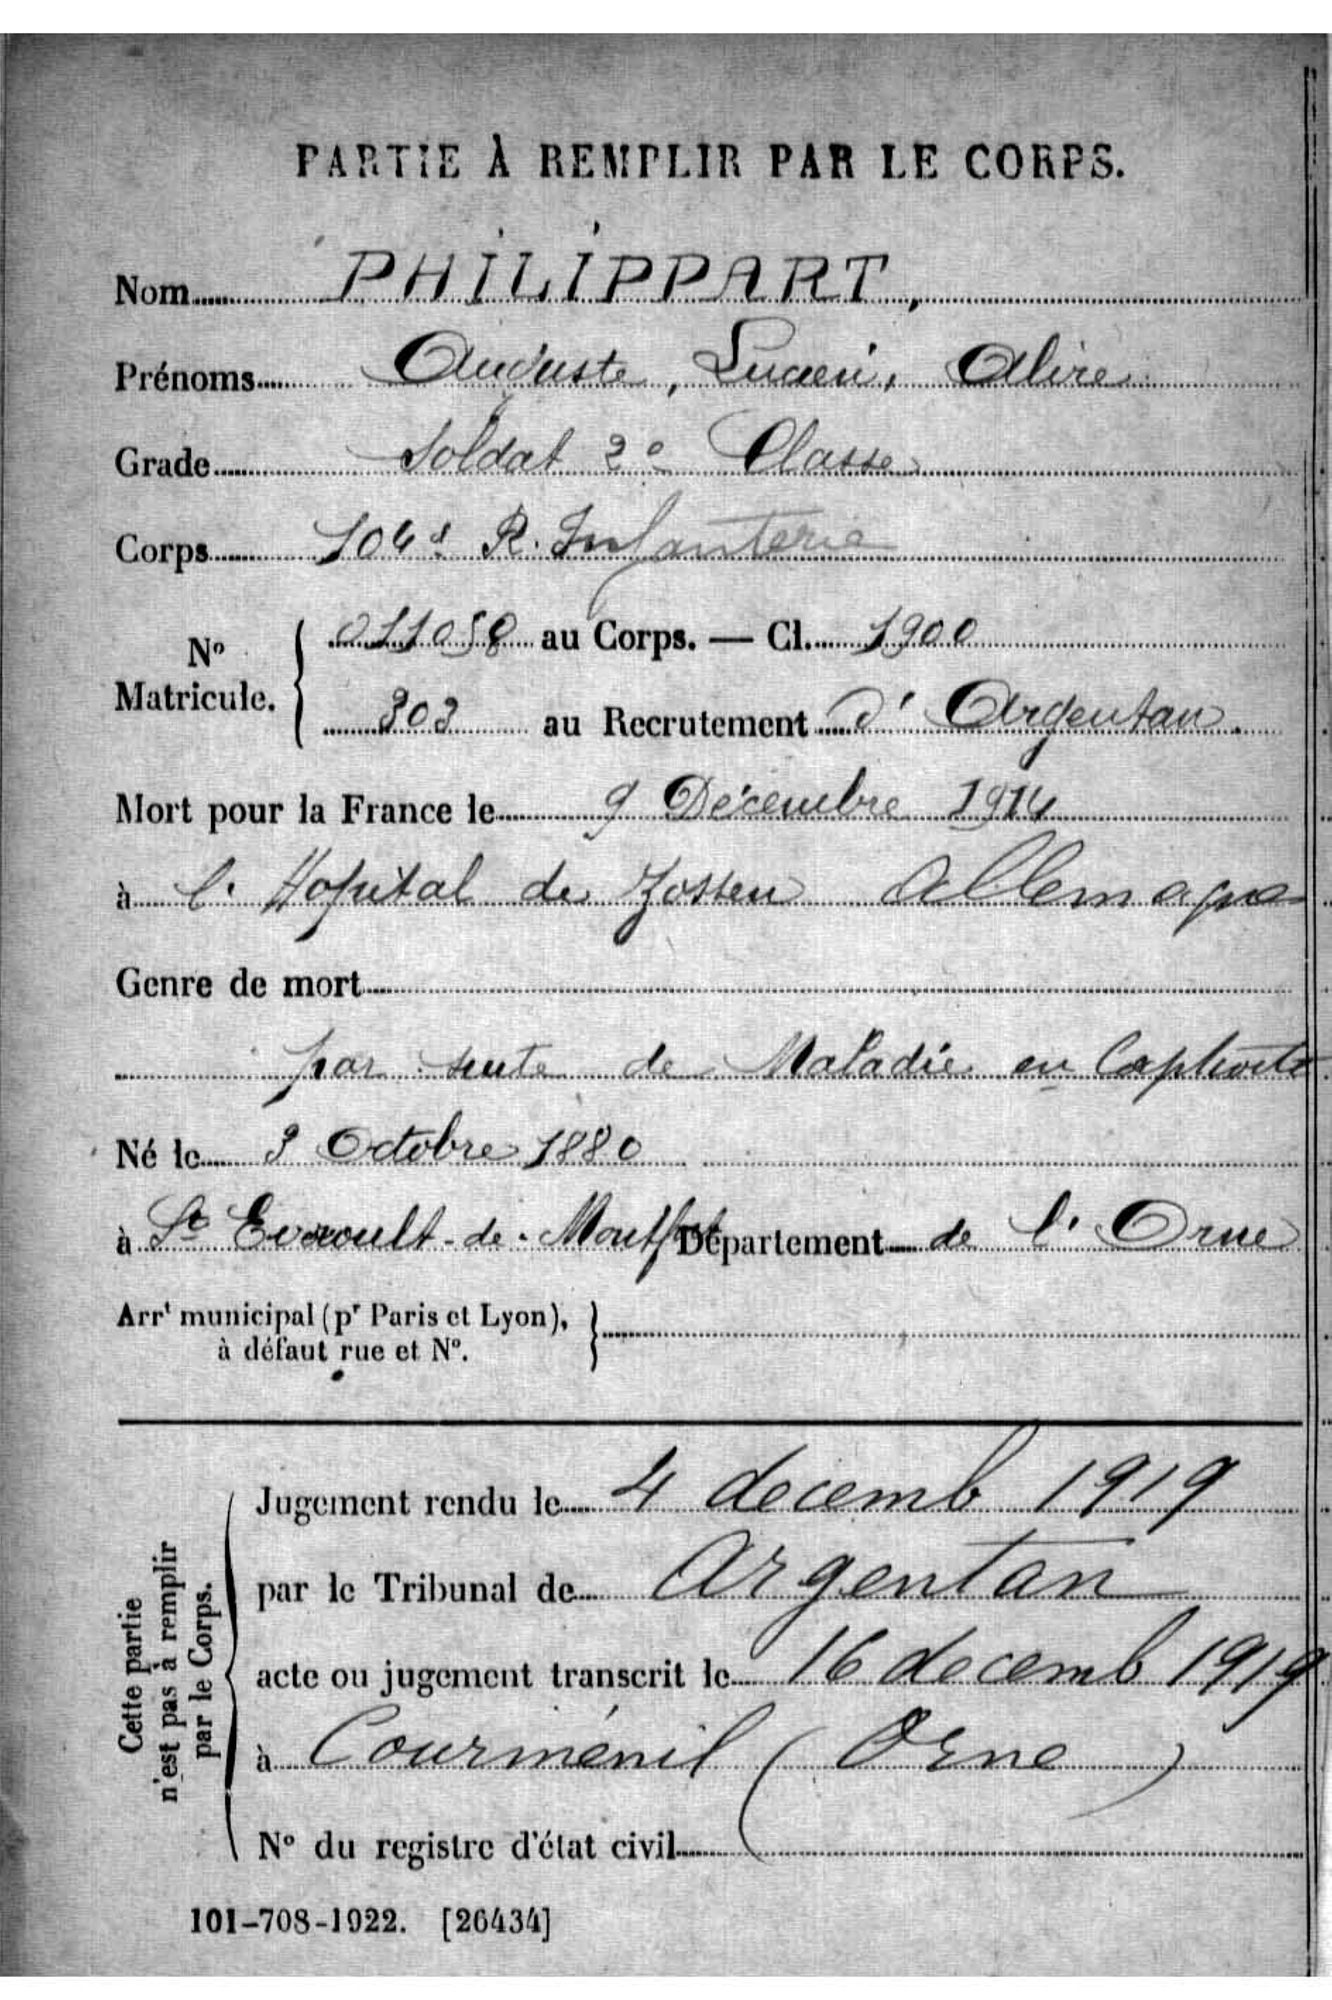 PARTIE À REMPLIR PAR LE CORPS.
Nom PHILIPPART,
Prénoms Auguste, Lucien, Alire
Grade Soldat 2e Classe
Corps 104e R. Infanterie
No Matricule. { 011058 au Corps. — Cl. 1900
303 au Recrutement d'Argentan.
Mort pour la France le 9 Décembre 1914
à l'Hopital de Zossen Allemagne
Genre de mort
par suite de Maladie en Captivité
Né le 3 Octobre 1880
à St Evroult-de-Montfort Département de l'Orne
Arrt municipal (pr Paris et Lyon),
à défaut rue et No.
Cette partie
n'est pas à remplir
par le Corps.
Jugement rendu le 4 decemb 1919
par le Tribunal de Argentan
acte ou jugement transcrit le 16 decemb 1919
à Courménil (Orne)
No du registre d'état civil
101-708-1922. [26434]